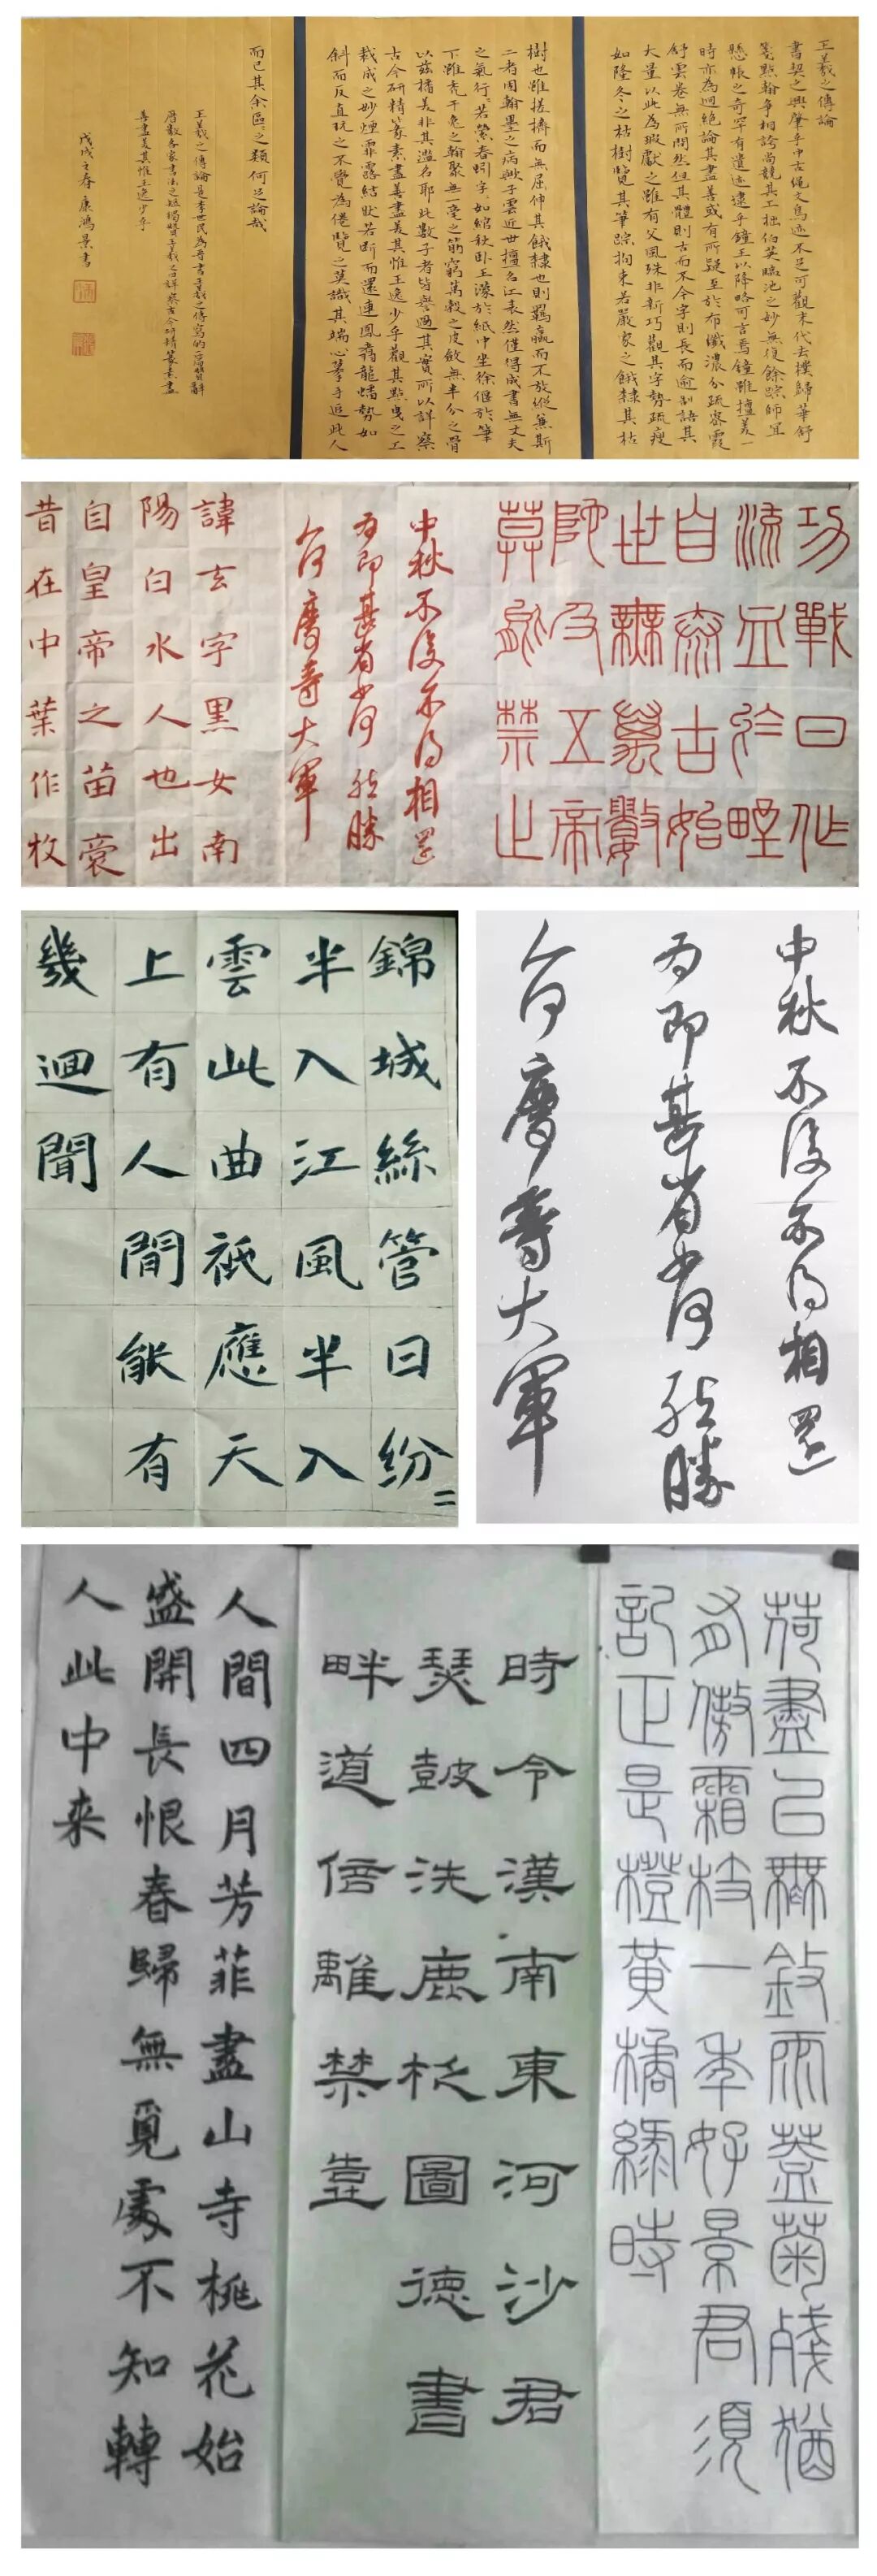 王羲之傳論
書契之興肇乎中古繩文鳥迹不足可觀末代去樸歸華舒
箋點翰爭相誇尚競其工拙伯英臨池之妙無復餘踪師宜
懸帳之奇罕有遺迹逮乎鐘王以降略可言焉鐘雖擅美一
時亦為迥絕論其盡善或有所疑至於布纖濃分疏密霞
舒雲卷無所間然但其體則古而不今字則長而逾制語其
大量以此為瑕獻之雖有父風殊非新巧觀其字勢疏瘦
如隆冬之枯樹覽其筆踪拘束若嚴家之餓隸其枯
樹也雖搓擠而無屈伸其餓隸也則羈羸而不放縱兼斯
二者固翰墨之病歟子雲近世擅名江表然僅得成書無丈夫
之氣行若縈春蚓字如綰秋卧王濛於紙中坐徐偃於筆
下雖禿千兔之翰聚無一毫之筋窮萬穀之皮斂無半分之骨
以茲播美非其濫名耶此數子者皆譽過其實所以詳察
古今研精篆素盡善盡美其惟王逸少乎觀其點曳之工
裁成之妙煙霏露結狀若斷而還連鳳翥龍蟠勢如
斜而反直玩之不覺為倦覽之莫識其端心摹手追此人
而已其余區區之類何足論哉
王羲之傳論是李世民為晉書王羲之傳寫的一篇贊辭
歷數各家書法之短獨贊王羲之曰詳察古今研精篆素盡
善盡美其惟王逸少乎
戊戌之春康鴻景書
功戰日作
流血於野
自泰古始
世無萬數
阤及五帝
莫能禁止
中秋不復不得相還
為即甚省如何然勝
人何慶等大軍
諱玄字黑女南
陽白水人也出
自皇帝之苗裔
昔在中葉作牧
錦城絲管日紛=
半入江風半入
雲此曲祇應天
上有人間能有
幾迴聞
中秋不復不得相還
為即甚省如何然勝
人何慶等大軍
荷盡已無擎雨蓋菊殘猶
有傲霜枝一年好景君須
記正是橙黃橘綠時
時令漢南東河沙君
瑟鼓洗鹿柉圖德書
畔道倍離禁壺
人間四月芳菲盡山寺桃花始
盛開長恨春歸無覓處不知轉
人此中来